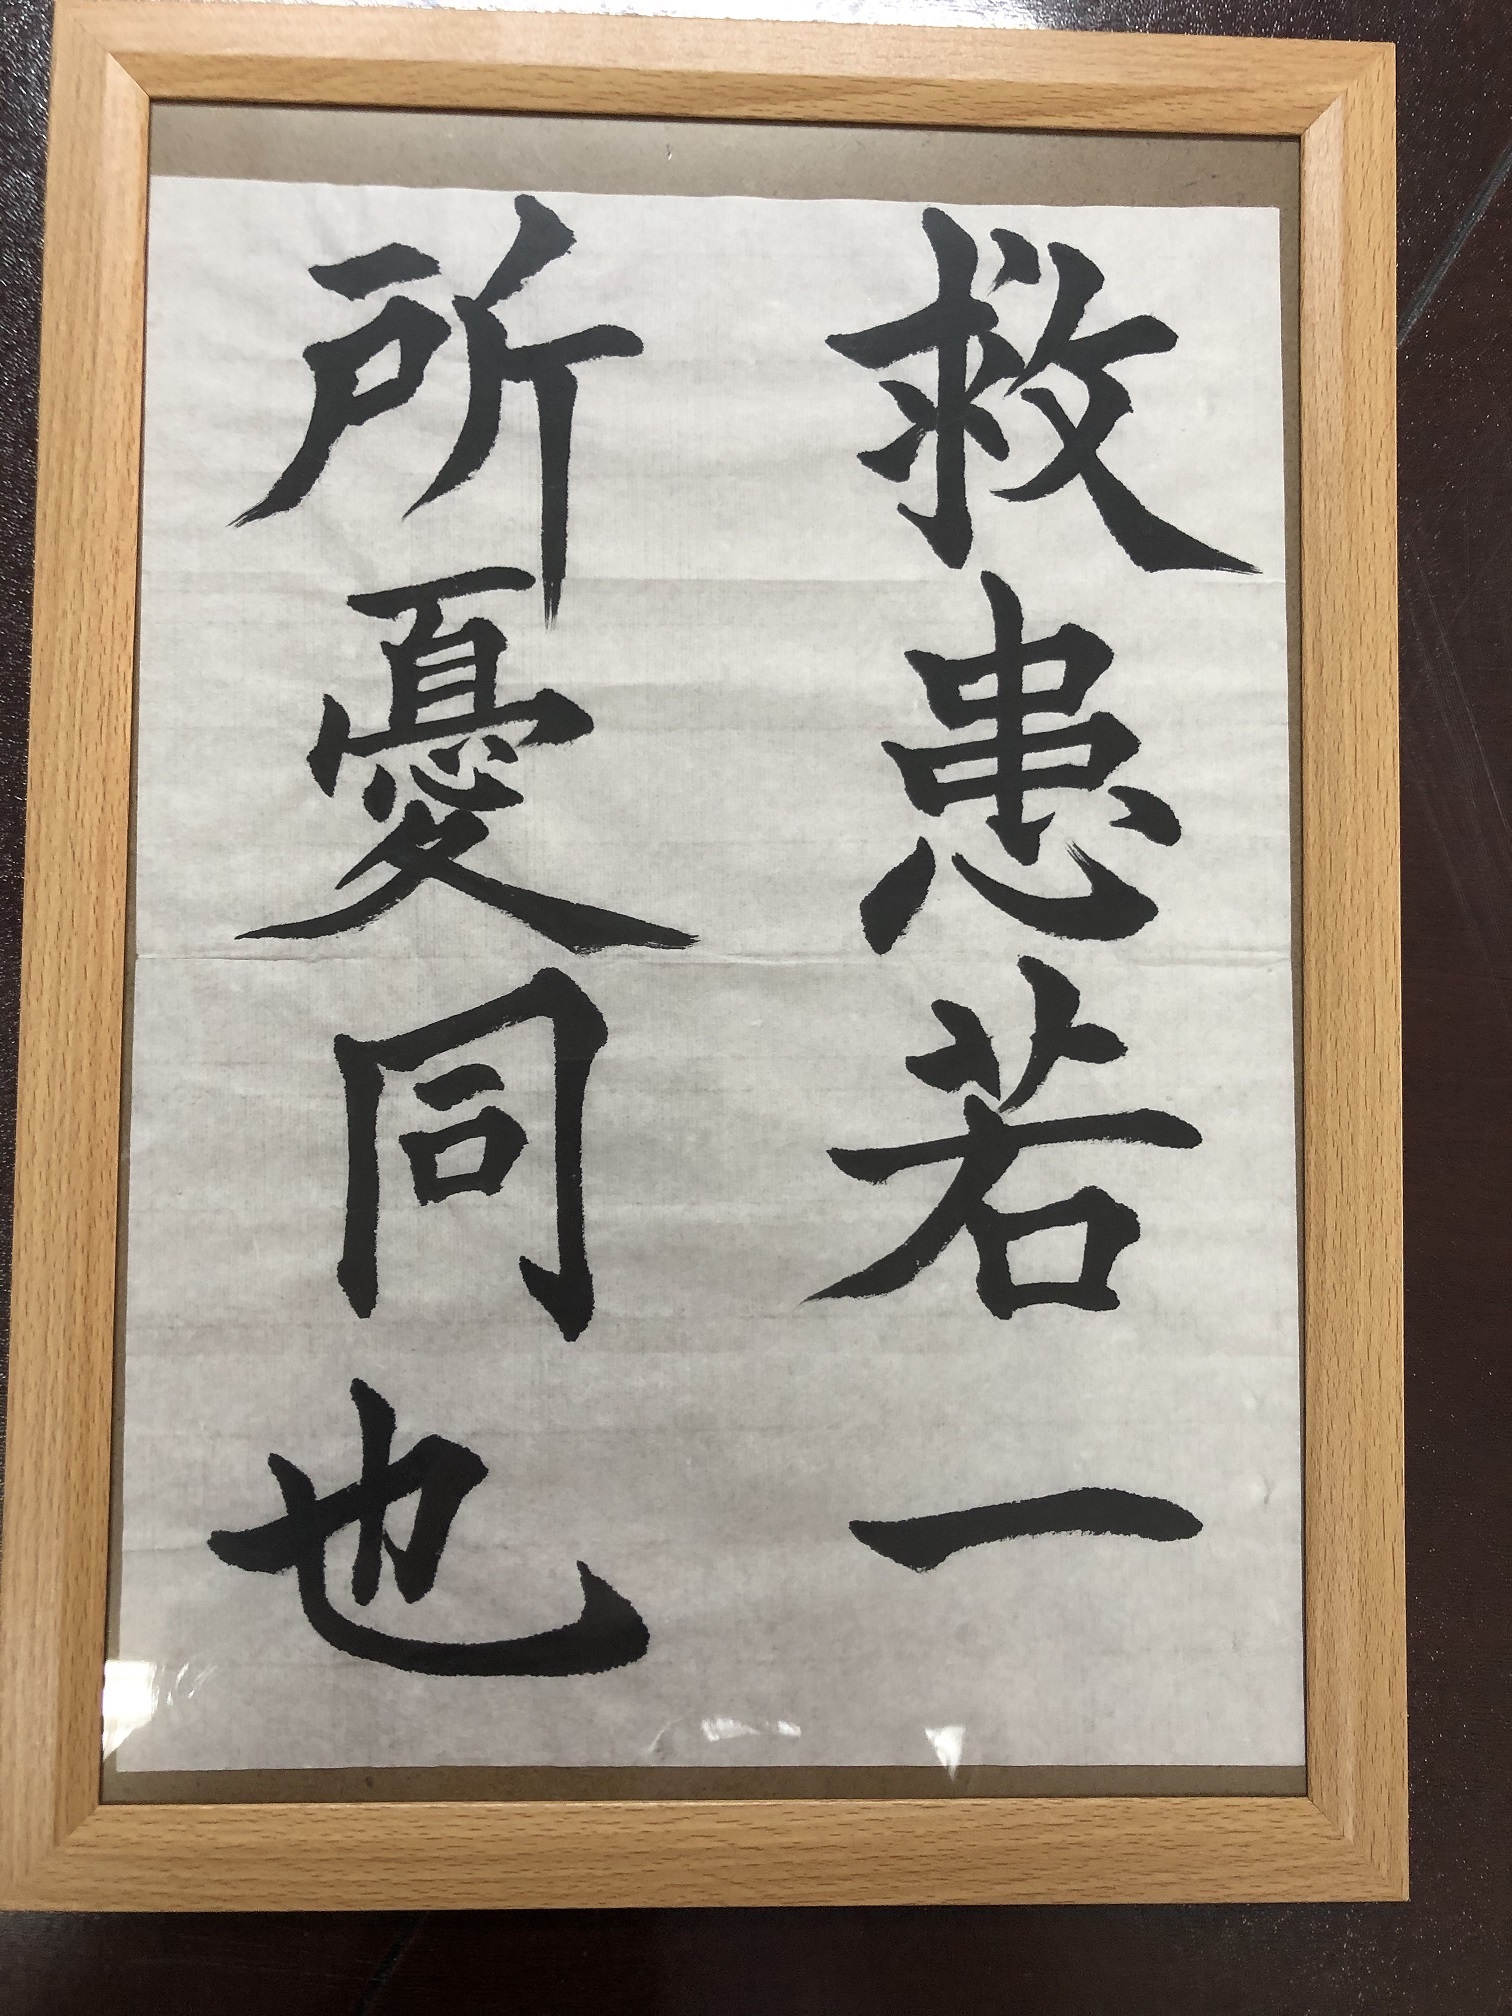 救患若一
所憂同也